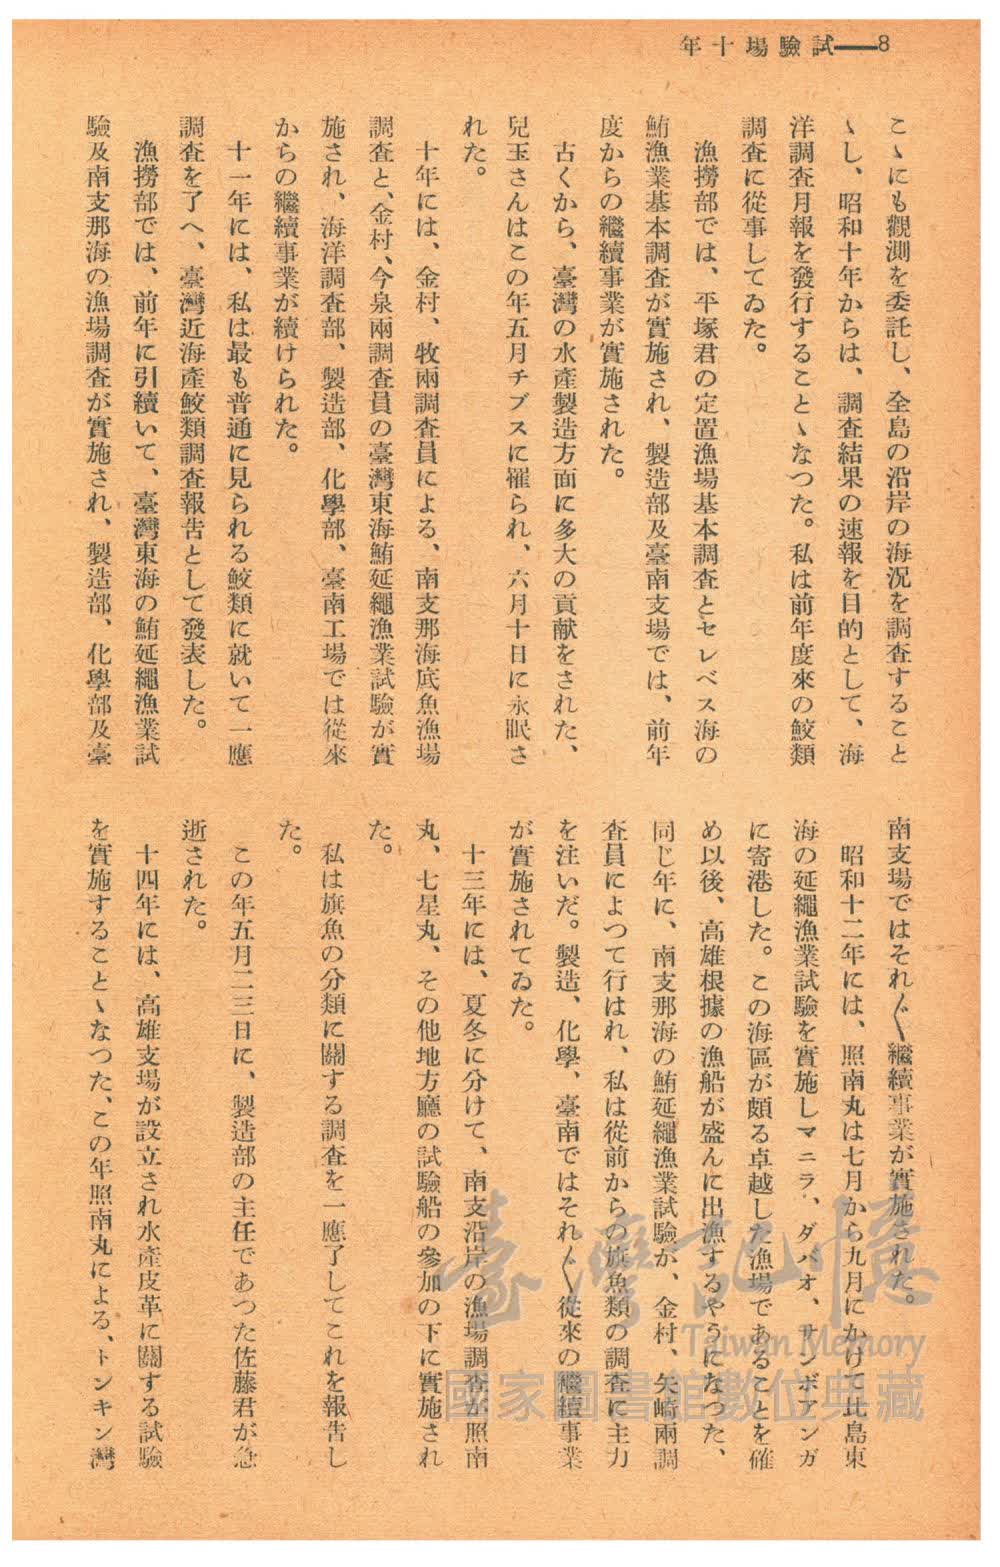 8━━試驗場十年
こゝにも觀測を委託し、全島の沿岸の海況を調査すること
ゝし、昭和十年からは、調査結果の速報を目的として、海
洋調査月報を發行することゝなつた。私は前年度來の鮫類
調査に從事してゐた。
漁撈部では、平塚君の定置漁場基本調査とセレベス海の
鮪漁業基本調査が實施され、製造部及臺南支場では、前年
度からの繼續事業が實施された。
古くから、臺灣の水產製造方面に多大の貢献をされた、
兒玉さんはこの年五月チブスに罹られ、六月十日に永眠さ
れた。
十年には、金村、牧兩調査員による、南支那海底魚漁場
調査と、金村、今泉兩調査員の臺灣東海鮪延繩漁業試驗が實
施され、海洋調査部、製造部、化學部、臺南工場では從來
からの繼續事業が續けられた。
十一年には、私は最も普通に見られる鮫類に就いて一應
調査を了へ、臺灣近海產鮫類調査報吿として發表した。
漁撈部では、前年に引續いて、臺灣東海の鮪延繩漁業試
驗及南支那海の漁場調査が實施され、製造部、化學部及臺
南支場ではそれ〲繼續事業が實施された。
昭和十二年には、照南丸は七月から九月にかけて比島東
海の延繩漁業試驗を實施しマニラ、ダバオ、サンボアンガ
に寄港した。この海區が頗る卓越した漁場であることを確
め以後、高雄根據の漁船が盛んに出漁するやうになつた、
同じ年に、南支那海の鮪延繩漁業試驗が、金村、矢崎兩調
査員によつて行はれ、私は從前からの旗魚類の調査に主力
を注いだ。製造、化學、臺南ではそれ〲從來の繼續事業
が實施されてゐた。
十三年には、夏冬に分けて、南支沿岸の漁場調査が照南
丸、七星丸、その他地方廳の試驗船の參加の下に實施され
た。
私は旗魚の分類に關する調査を一應了してこれを報吿し
た。
この年五月二三日に、製造部の主任であつた佐藤君が急
逝された。
十四年には、高雄支場が設立され水產皮革に關する試驗
を實施することゝなつた、この年照南丸による、トンキン灣
臺灣記憶
Taiwan Memory
國家圖書館數位典藏